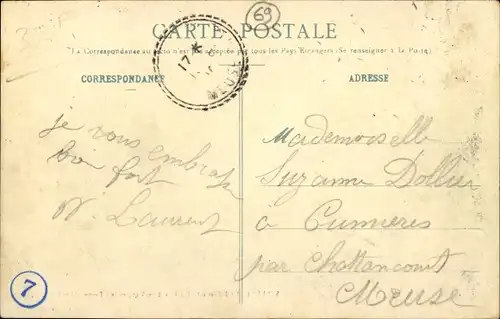 69
CARTE POSTALE
La Correspondance au recto n'est pas acceptée par tous les Pays Etrangers (Se renseigner à la Poste)
CORRESPONDANCE
ADRESSE
17 *
MEUSE
je vous embrasse
bien fort
Laurent
Mademoiselle
Suzanne Dollier
à Cumières
par Chattancourt
Meuse
7